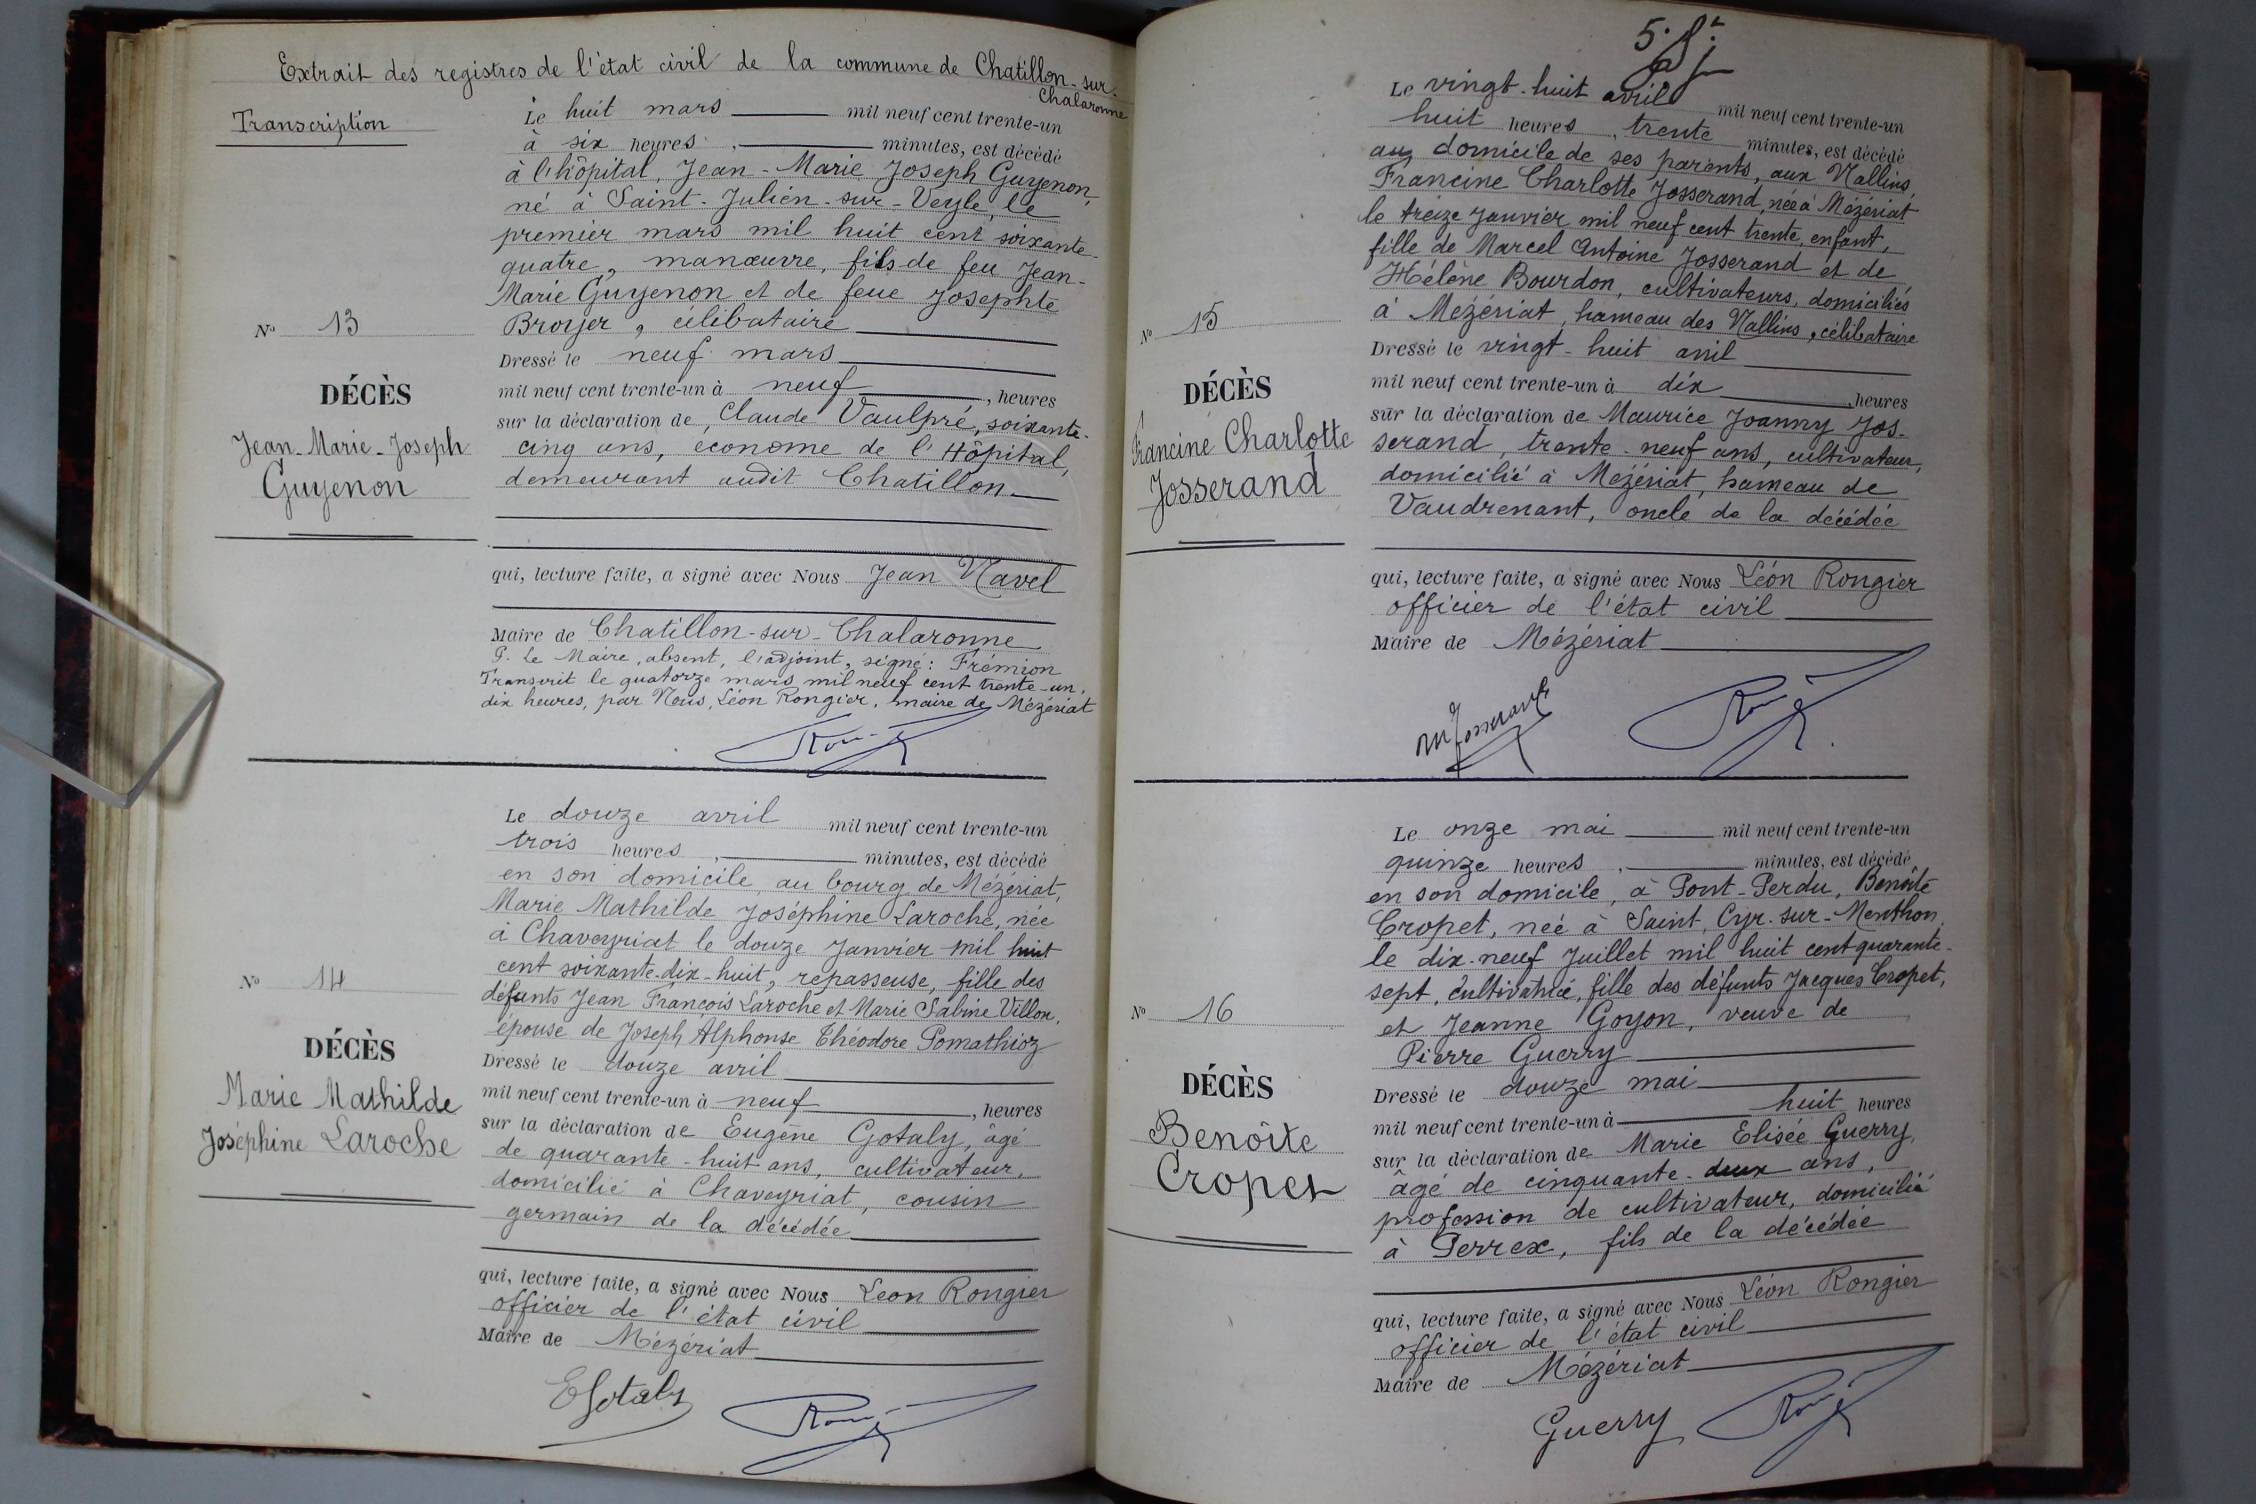 Extrait des registres de l'état civil de la commune de Chatillon-sur-
Chalaronne
Transcription
Le huit mars mil neuf cent trente-un
à six heures, minutes, est décédé
à l'hôpital, Jean-Marie Joseph Guyenon,
né à Saint-Julien-sur-Veyle, le
premier mars mil huit cent soixante-
quatre, manœuvre, fils de feu Jean-
Marie Guyenon et de feue Josephte
Broyer, célibataire
N° 13
DÉCÈS
Jean-Marie-Joseph
Guyenon
Dressé le neuf mars
mil neuf cent trente-un à neuf, heures
sur la déclaration de, Claude Vaulpré, soixante-
cinq ans, économe de l'Hôpital,
demeurant audit Chatillon
qui, lecture faite, a signé avec Nous Jean Navel
Maire de Chatillon-sur-Chalaronne
P. Le Maire, absent, l'adjoint, signé: Frémion
Transcrit le quatorze mars mil neuf cent trente-un,
dix heures, par Nous, Léon Rongier, maire de Mézériat
Le douze avril mil neuf cent trente-un
trois heures, minutes, est décédé
en son domicile, au bourg de Mézériat,
Marie Mathilde Joséphine Laroche, née
à Chaveyriat le douze Janvier mil huit
cent soixante-dix-huit, repasseuse, fille des
défunts Jean François Laroche et Marie Sabine Villon,
épouse de Joseph Alphonse Théodore Pomathioz
N° 14
DÉCÈS
Marie Mathilde
Joséphine Laroche
Dressé le douze avril
mil neuf cent trente-un à neuf, heures
sur la déclaration de Eugène Gotaly, âgé
de quarante-huit ans, cultivateur,
domicilié à Chaveyriat, cousin
germain de la décédée
qui, lecture faite, a signé avec Nous Léon Rongier
officier de l'état civil
Maire de Mézériat
E Gotaly
Le vingt-huit avril mil neuf cent trente-un
huit heures, trente minutes, est décédé
au domicile de ses parents, aux Nallins,
Francine Charlotte Josserand, née à Mézériat
le treize Janvier mil neuf cent trente, enfant,
fille de Marcel Antoine Josserand et de
Hélène Bourdon, cultivateurs, domiciliés
à Mézériat, hameau des Nallins, célibataire
N° 15
DÉCÈS
Francine Charlotte
Josserand
Dressé le vingt-huit avril
mil neuf cent trente-un à dix, heures
sur la déclaration de Maurice Joanny Jos-
serand, trente-neuf ans, cultivateur,
domicilié à Mézériat, hameau de
Vaudrenant, oncle de la décédée
qui, lecture faite, a signé avec Nous Léon Rongier
officier de l'état civil
Maire de Mézériat
M Josserand
Le onze mai mil neuf cent trente-un
quinze heures, minutes, est décédé
en son domicile, à Pont-Perdu, Benoîte
Cropet, née à Saint Cyr-sur-Menthon,
le dix-neuf Juillet mil huit cent quarante-
sept, cultivatrice, fille des défunts Jacques Cropet,
et Jeanne Goyon, veuve de
Pierre Guerry
N° 16
DÉCÈS
Benoîte
Cropet
Dressé le douze mai
mil neuf cent trente-un à huit heures
sur la déclaration de Marie Elisée Guerry,
âgé de cinquante-deux ans,
profession de cultivateur, domicilié
à Perrex, fils de la décédée
qui, lecture faite, a signé avec Nous Léon Rongier
officier de l'état civil
Maire de Mézériat
Guerry